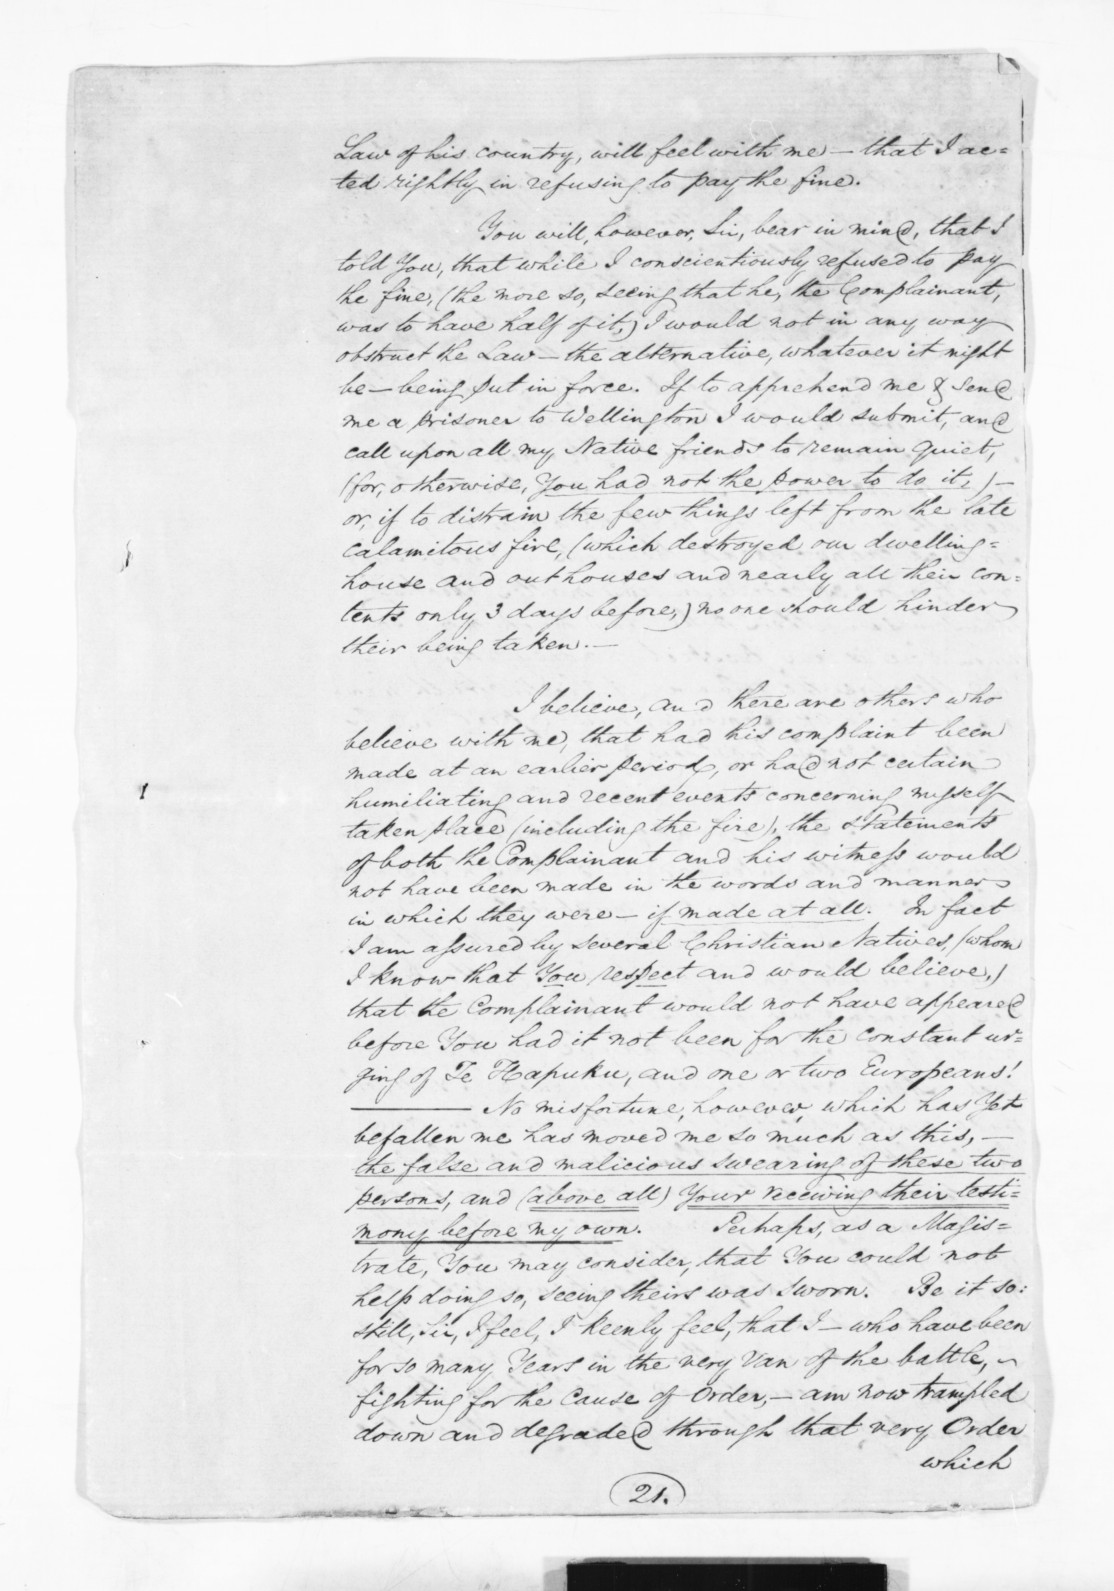 Law of his country, will feel with me – that I ac=
ted rightly in refusing to pay the fine.
You will, however, Sir, bear in mind, that I
told You, that while I conscientiously refused to pay
the fine, (the more so, seeing that he, the Complainant,
was to have half of it,) I would not in any way
obstruct the Law – the alternative, whatever it might
be – being put in force. If to apprehend me & send
me a prisoner to Wellington I would submit, and
call upon all my Native friends to remain quiet,
(for, otherwise, You had not the power to do it,) –
or, if to distrain the few things left from the late
calamitous fire, (which destroyed our dwelling=
house and outhouses and nearly all their con=
tents only 3 days before,) no one should hinder
their being taken. –
I believe, and there are others who
believe with me, that had his complaint been
made at an earlier period, or had not certain
humiliating and recent events concerning myself
taken place (including the fire), the statements
of both the Complainant and his witness would
not have been made in the words and manner
in which they were – if made at all. In fact
I am assured by several Christian Natives, (whom
I know that You respect and would believe,)
that the Complainant would not have appeared
before You had it not been for the constant ur=
ging of Te Hapuku, and one or two Europeans!
——— No misfortune, however, which has Yet
befallen me has moved me so much as this, –
the false and malicious swearing of these two
persons, and (above all) Your receiving their testi=
mony before my own. Perhaps, as a Magis=
trate, You may consider, that You could not
help doing so, seeing theirs was sworn. Be it so:
still, Sir, I feel, I keenly feel, that I – who have been
for so many Years in the very van of the battle, ~
fighting for the cause of Order, – am now trampled
down and degraded through that very Order
which
21.